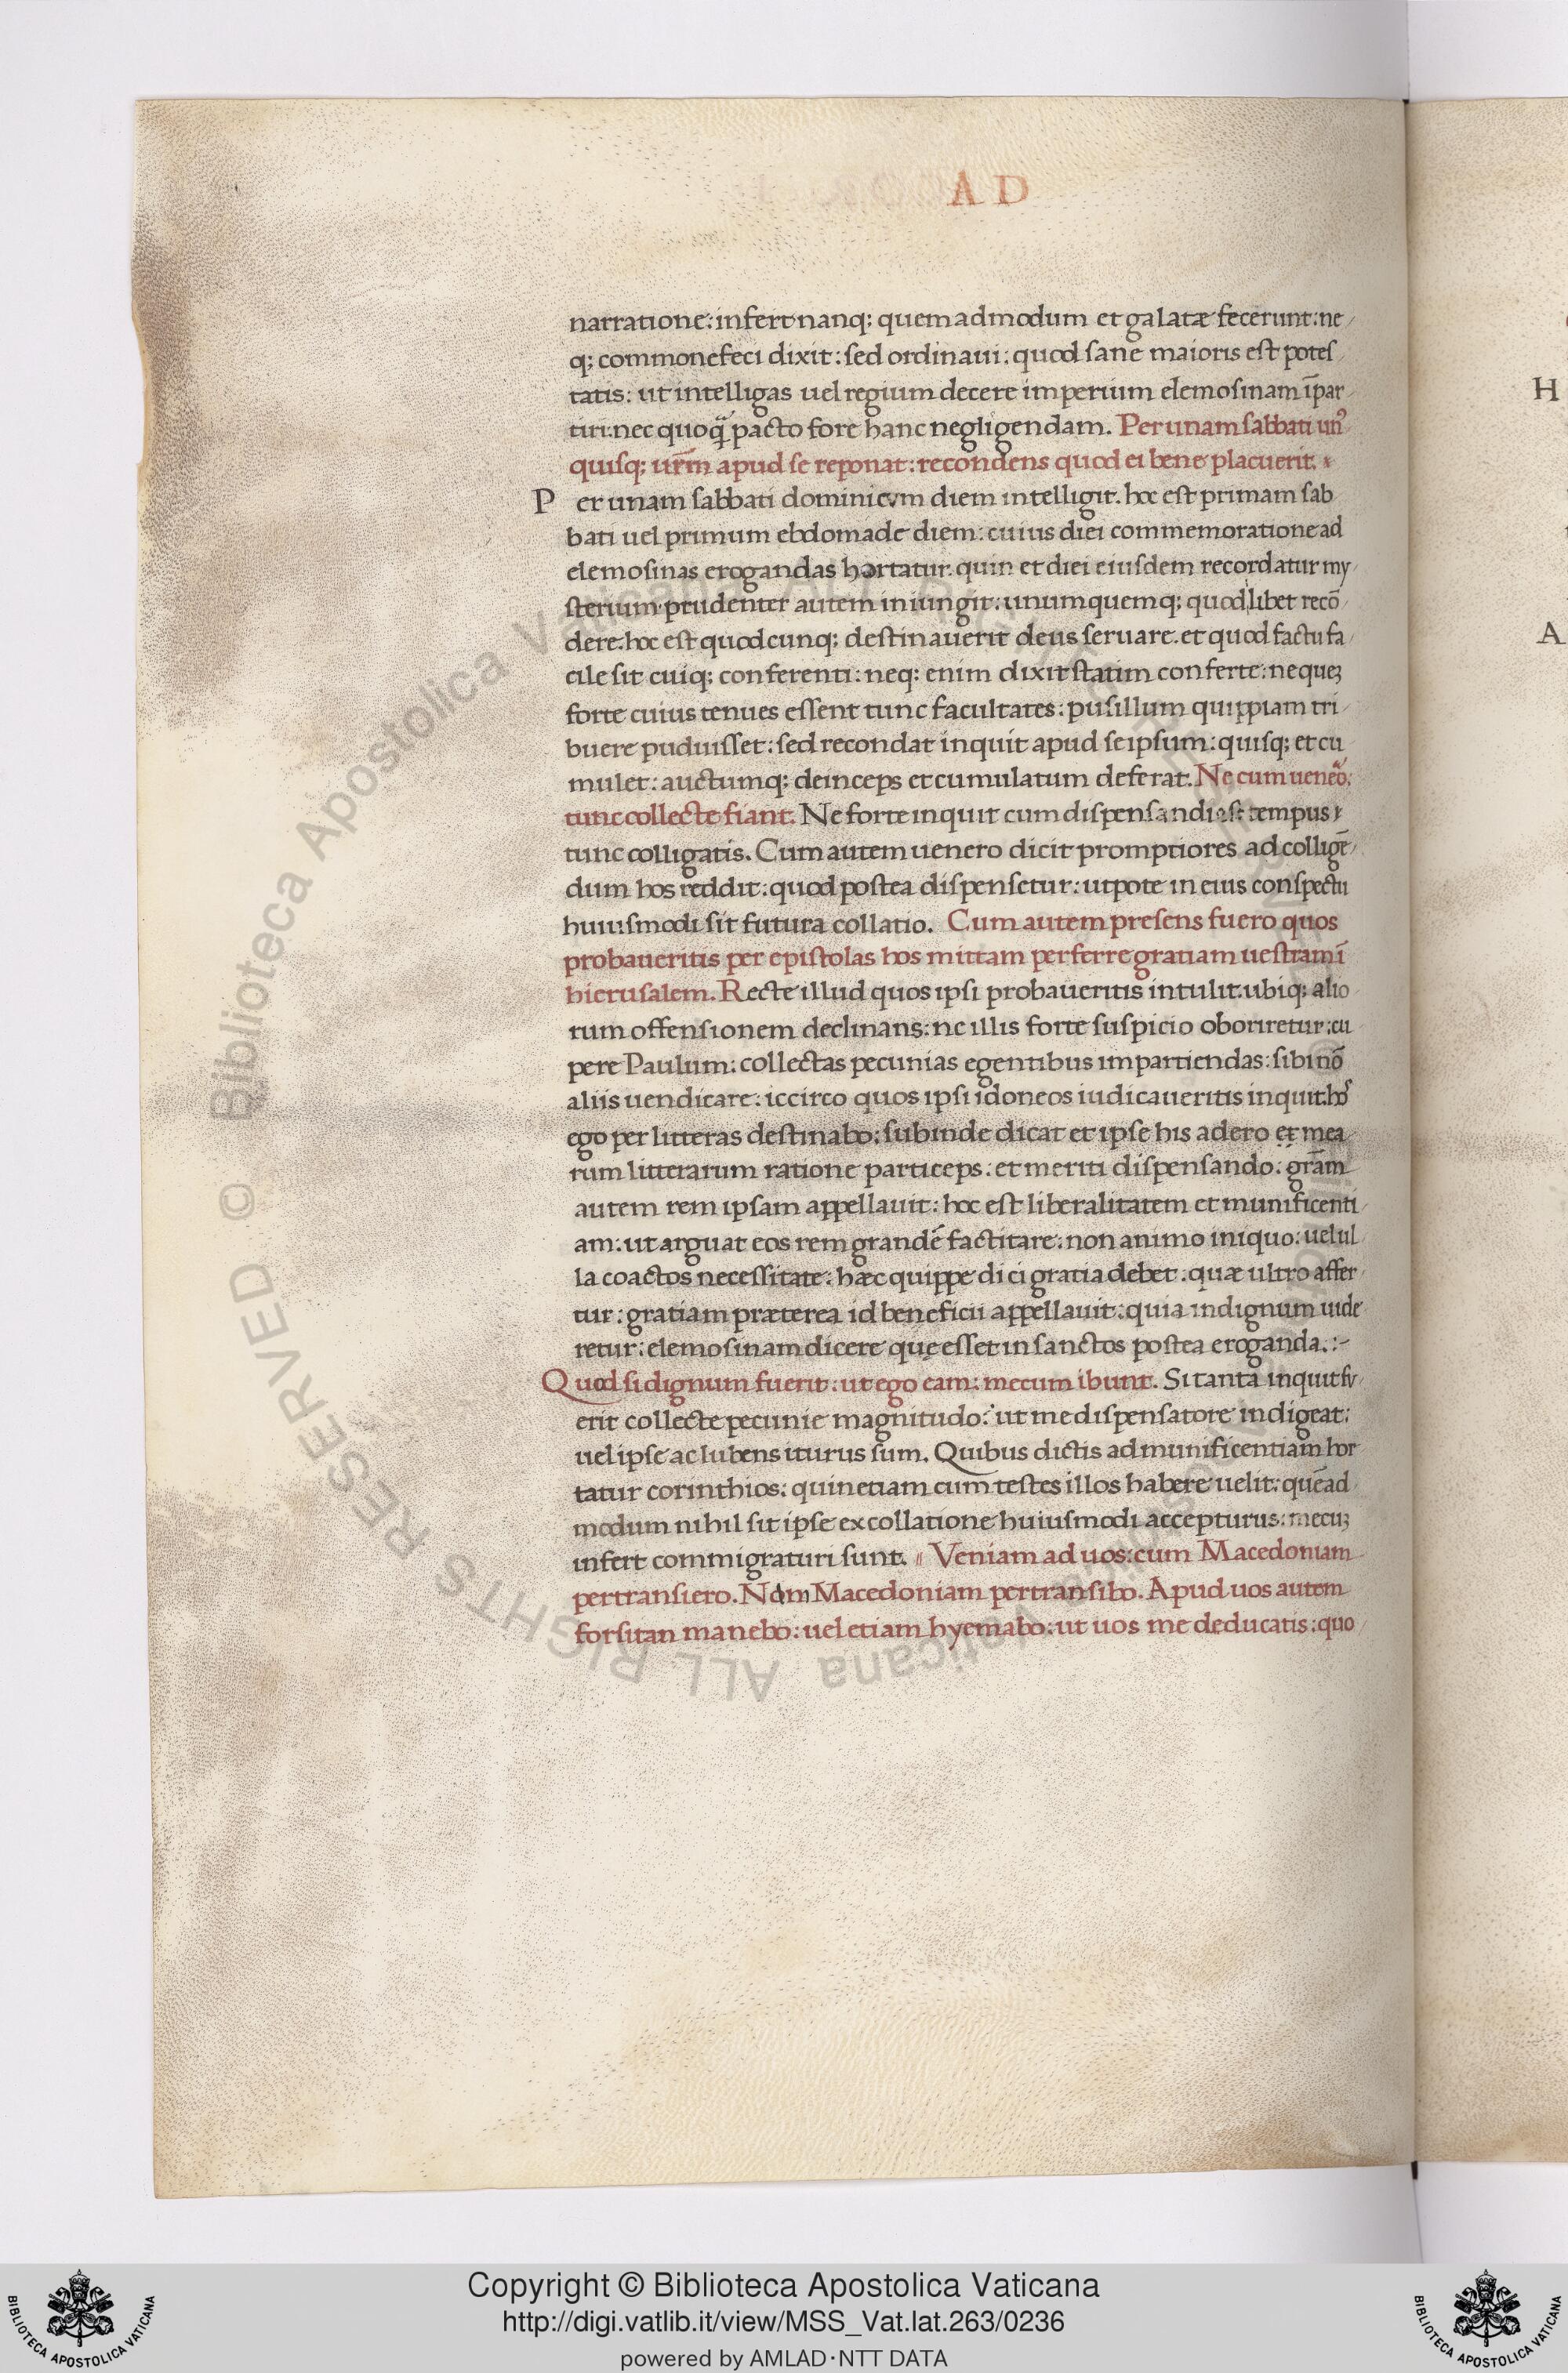 A D
narratione: infert nanq; quemadmodum et galatæ fecerunt: ne
q; commonefeci dixit: sed ordinaui: quod sane maioris est potes
tatis: ut intelligas uel regium decere imperium elemosinam īpar
tiri: nec quoq̃ pacto fore hanc negligendam. Per unam sabbati unꝰ
quisq; ur̄m apud se reponat: recondens quod ei bene placuerit.
P er unam sabbati dominicvm diem intelligit. hoc est primam sab
bati uel primum ebdomade diem: cuius diei commemoratione ad
elemosinas erogandas hortatur. quin et diei eiusdem recordatur my
sterium. prudenter autem iniungit: unumquemq; quod libet recō
dere. hoc est quodcunq; destinauerit deus seruare. et quod factu fa
cile sit cuiq; conferenti: neq; enim dixit statim conferte: ne queꝫ
forte cuius tenues essent tunc facultates: pusillum quippiam tri
buere puduisset: sed recondat inquit apud seipsum: quisq; et cu
mulet: auctumq; deinceps et cumulatum deferat. Ne cum uenēo.
tunc collecte fiant. Ne forte inquit cum dispensandi est tempus
tunc colligatis. Cum autem uenero dicit promptiores ad colligē
dum hos reddit: quod postea dispensetur: utpote in eius conspectu
huiusmodi sit futura collatio. Cum autem presens fuero quos
probaueritis per epistolas hos mittam perferre gratiam uestram ī
hierusalem. Recte illud quos ipsi probaueritis intulit. ubiq; alio
rum offensionem declinans: ne illis forte suspicio oboriretur: cu
pere Paulum: collectas pecunias egentibus impartiendas: sibi nō
aliis uendicare: iccirco quos ipsi idoneos iudicaueritis inquit: hos
ego per litteras destinabo: subinde dicat et ipse his adero et mea
rum litterarum ratione particeps: et meriti dispensando: gr̄am
autem rem ipsam appellauit: hoc est liberalitatem et munificenti
am: ut arguat eos rem grandē factitare: non animo iniquo: uel ul
la coactos necessitate: hæc quippe dici gratia debet: quæ ultro affer
tur: gratiam præterea id beneficii appellauit: quia indignum uide
retur: elemosinam dicere quę esset in sanctos postea eroganda.:-
Quod si dignum fuerit: ut ego eam: mecum ibunt. Si tanta inquit fv
erit collecte pecunie magnitudo: ut me dispensatore indigeat:
uel ipse ac lubens iturus sum. Quibus dictis ad munificentiam hor
tatur corinthios: quinetiam cum testes illos habere uelit: quēad
modum nihil sit ipse ex collatione huiusmodi accepturus: mecuꝫ
infert commigraturi sunt. Veniam ad uos: cum Macedoniam
pertransiero. Nam Macedoniam pertransibo. Apud uos autem
forsitan manebo: uel etiam hyemabo: ut uos me deducatis: quo
H
A
© Biblioteca Apostolica Vaticana ALL RIGHTS RESERVED
Copyright © Biblioteca Apostolica Vaticana
http://digi.vatlib.it/view/MSS_Vat.lat.263/0236
powered by AMLAD·NTT DATA
BIBLIOTECA APOSTOLICA VATICANA
BIBLIOTECA APOSTOLICA VATICANA